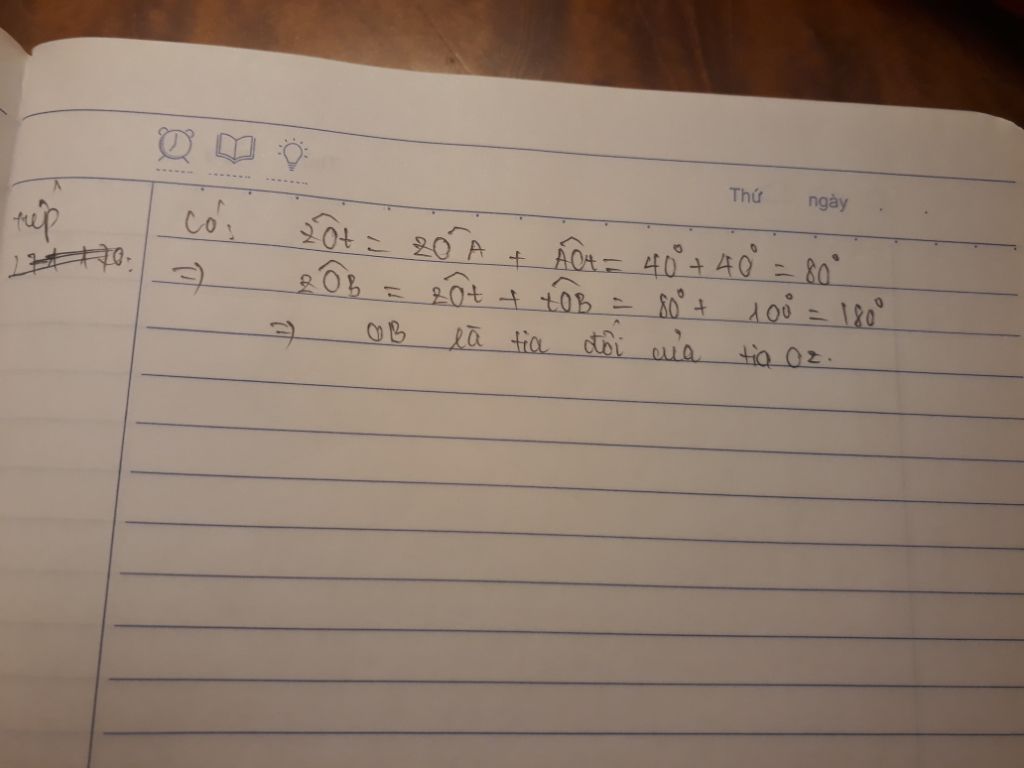 Thứ ngày
tiếp
Có: zÔt = zÔA + AÔt = 40° + 40° = 80°
=> zÔB = zÔt + tÔB = 80° + 100° = 180°
=> OB là tia đối của tia Oz.